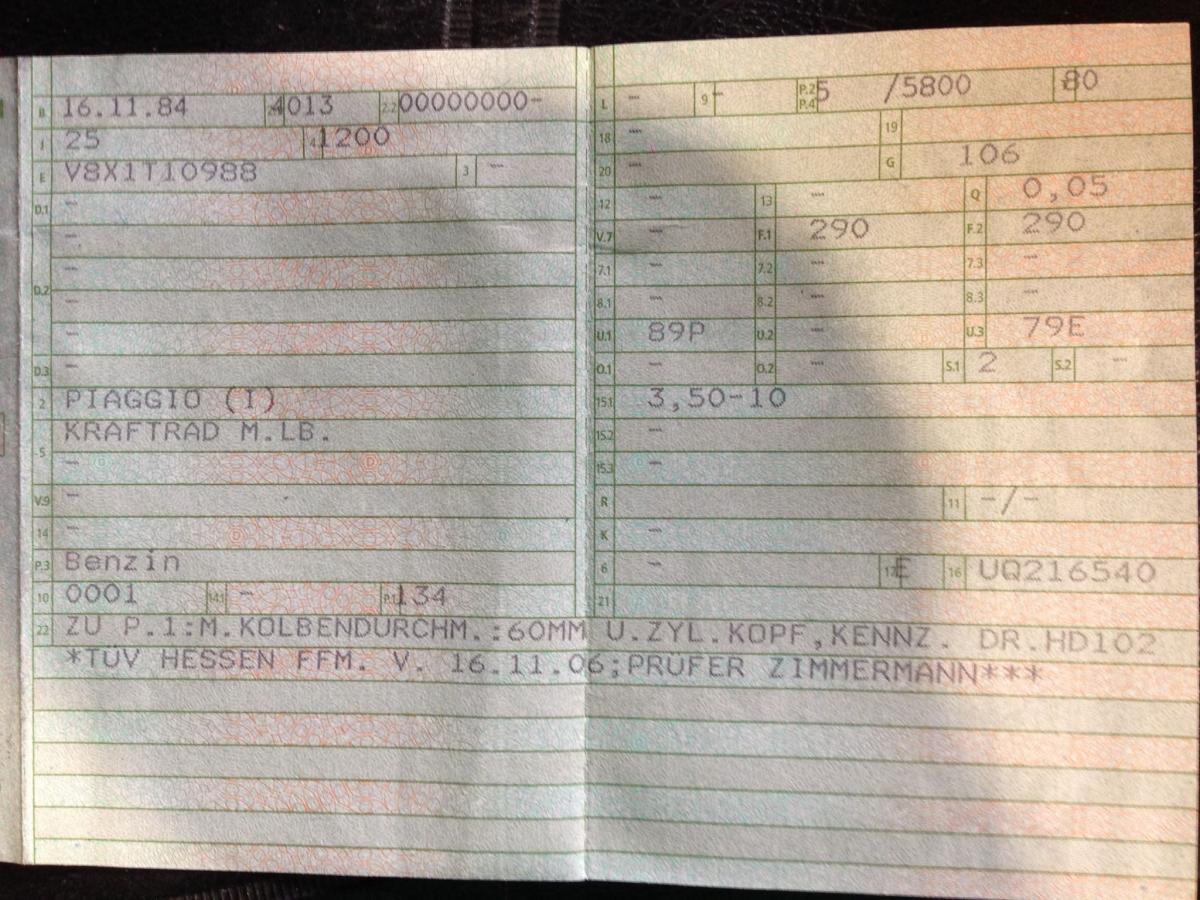 B 16.11.84 2.1 4013 2.2 00000000-
J 25 4 1200
E V8X1T10988 3 -
D.1 -
-
D.2 -
-
-
D.3 -
2 PIAGGIO (I)
5 KRAFTRAD M.LB.
-
V.9 -
14 -
P.3 Benzin
10 0001 14.1 - P.1 134
L - 9 - P.2 P.4 5 /5800 T 80
18 - 19
20 - G 106
12 - 13 - Q 0,05
V.7 - F.1 290 F.2 290
7.1 - 7.2 - 7.3 -
8.1 - 8.2 - 8.3 -
U.1 89P U.2 - U.3 79E
O.1 - O.2 - S.1 2 S.2 -
15.1 3,50-10
15.2 -
15.3 -
R 11 -/-
K -
6 - 17 E 16 UQ216540
21
22 ZU P.1:M.KOLBENDURCHM.:60MM U.ZYL.KOPF,KENNZ. DR.HD102
*TÜV HESSEN FFM. V. 16.11.06;PRÜFER ZIMMERMANN***